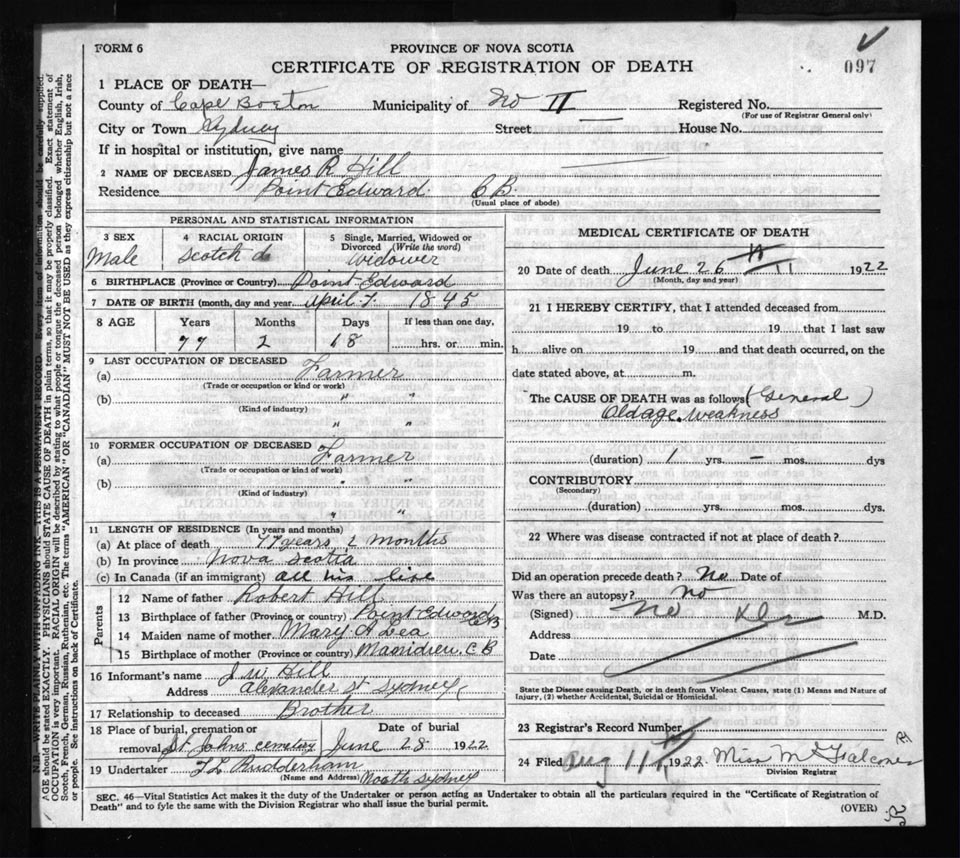 FORM 6
PROVINCE OF NOVA SCOTIA
CERTIFICATE OF REGISTRATION OF DEATH
097
1 PLACE OF DEATH—
County of Cape Breton Municipality of No II Registered No.
(For use of Registrar General only)
City or Town Sydney Street House No.
If in hospital or institution, give name
2 NAME OF DECEASED James R Hill
Residence Point Edward C B.
(Usual place of abode)
PERSONAL AND STATISTICAL INFORMATION
3 SEX
Male
4 RACIAL ORIGIN
Scotch
5 Single, Married, Widowed or
Divorced (Write the word)
Widower
6 BIRTHPLACE (Province or Country) Point Edward
7 DATE OF BIRTH (month, day and year) April 7 1845
8 AGE Years Months Days If less than one day,
77 2 18 hrs. or min.
9 LAST OCCUPATION OF DECEASED
(a) Farmer
(Trade or occupation or kind of work)
(b) " "
(Kind of industry)
" "
10 FORMER OCCUPATION OF DECEASED
(a) Farmer
(Trade or occupation or kind of work)
(b) " "
(Kind of industry)
" "
11 LENGTH OF RESIDENCE (In years and months)
(a) At place of death 77 years 2 months
(b) In province Nova Scotia
(c) In Canada (if an immigrant) all his live
Parents
12 Name of father Robert Hill
13 Birthplace of father (Province or country) Point Edward CB
14 Maiden name of mother Mary A Lea
15 Birthplace of mother (Province or country) C B
16 Informant's name J. W Hill
Address Alexander St Sydney
17 Relationship to deceased Brother
18 Place of burial, cremation or Date of burial
removal St Johns cemetery June 28 1922
19 Undertaker Rudderham
(Name and Address) North Sydney
MEDICAL CERTIFICATE OF DEATH
20 Date of death June 26 1922
(Month, day and year)
21 I HEREBY CERTIFY, that I attended deceased from
19 to 19 that I last saw
h alive on 19 and that death occurred, on the
date stated above, at m.
The CAUSE OF DEATH was as follows (General)
Old age. weakness
(duration) 1 yrs. – mos. dys
CONTRIBUTORY
(Secondary)
(duration) yrs. mos. dys.
22 Where was disease contracted if not at place of death?
Did an operation precede death? No Date of
Was there an autopsy? no
(Signed) No Dr M.D.
Address
Date
State the Disease causing Death, or in death from Violent Causes, state (1) Means and Nature of
Injury, (2) whether Accidental, Suicidal or Homicidal.
23 Registrar's Record Number
24 Filed Aug 11 1922 Miss M Falconer
Division Registrar
SEC. 46—Vital Statistics Act makes it the duty of the Undertaker or person acting as Undertaker to obtain all the particulars required in the "Certificate of Registration of
Death" and to fyle the same with the Division Registrar who shall issue the burial permit.
(OVER)
N.B. WRITE PLAINLY WITH UNFADING INK—THIS IS A PERMANENT RECORD. Every item of information should be carefully supplied.
AGE should be stated EXACTLY. PHYSICIANS should STATE CAUSE OF DEATH in plain terms, so that it may be properly classified. Exact statement of
OCCUPATION is very important. RACIAL ORIGIN will be described by stating to what people or tongue the deceased person belonged whether English, Irish,
Scotch, French, German, Russian, Ruthenian, etc. The terms "AMERICAN" OR "CANADIAN" MUST NOT BE USED as they express citizenship but not a race
or people. See instructions on back of Certificate.